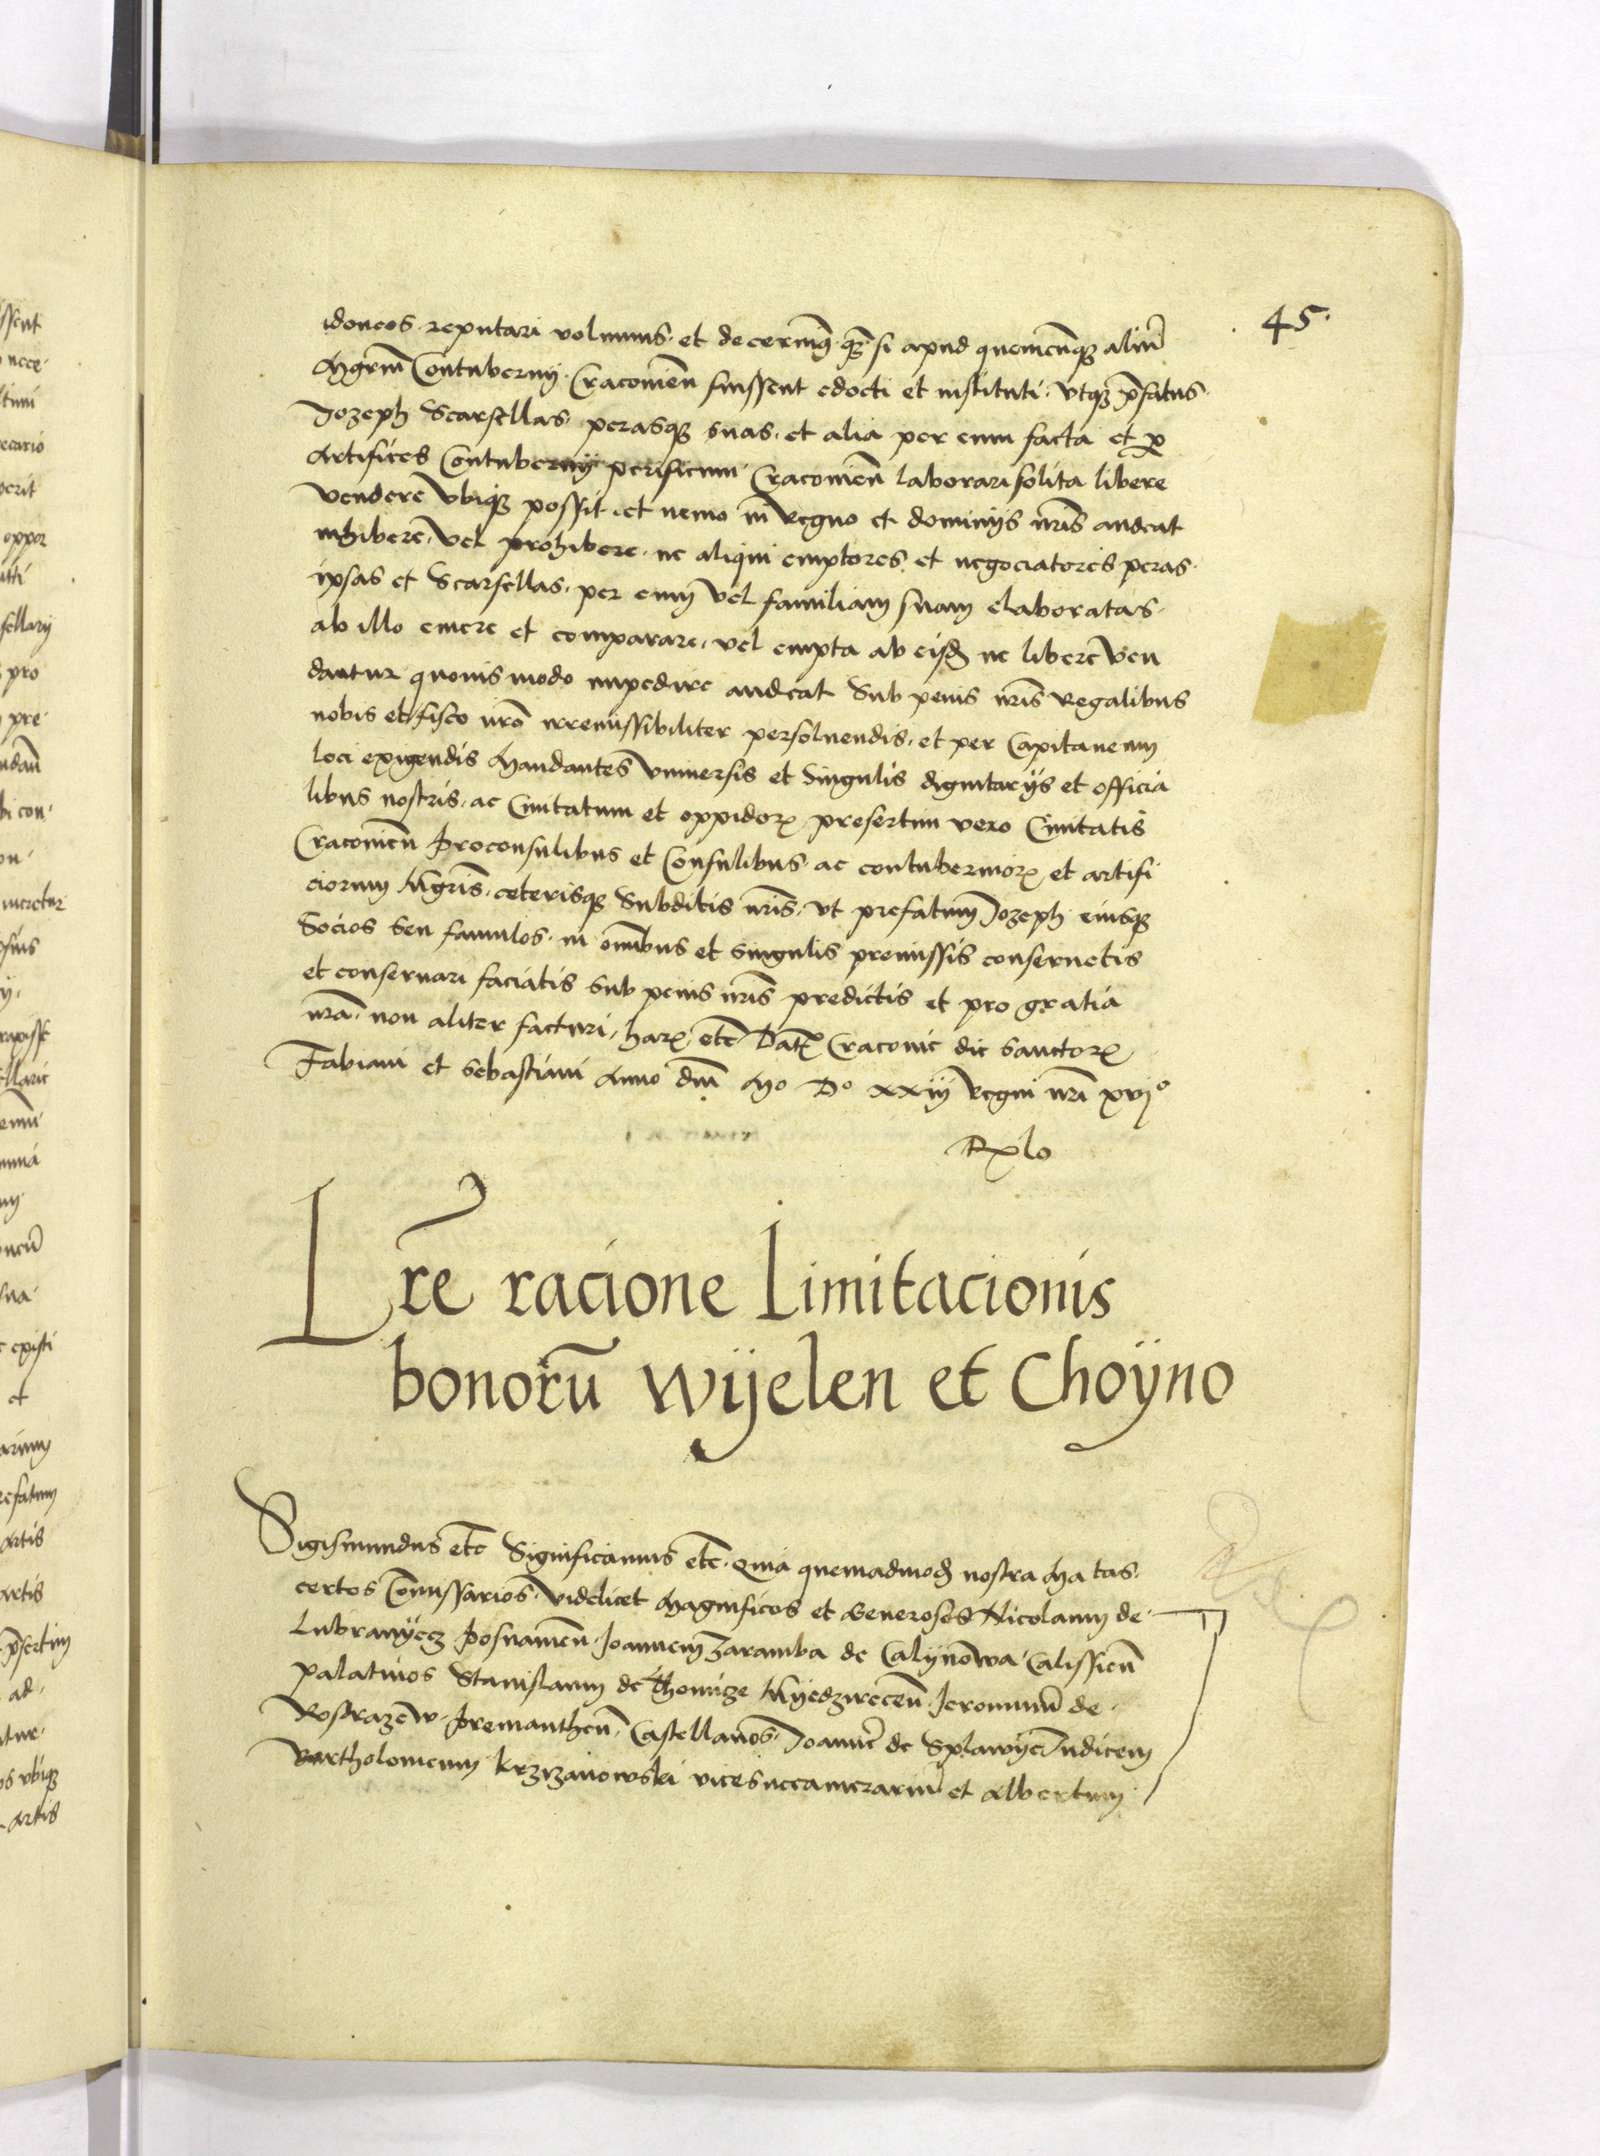 45.
idoneos reputari volumus et decernimꝯ qꝫ si apud quemcunqꝫ aliũ
Mgrm̃ Contubernij Cracovień fuissent edocti et instituti. Utqꝫ p̃fatus
Jozeph Scarsellas perasqꝫ suas. et alia per eum facta et ꝑ
Artifices Contubernij perificum Cracovień laborari solita libere
vendere vbiqꝫ possit. et nemo in Regno et dominijs nr̃is audeat
inhibere. vel prohibere. ne aliqui emptores et negociatores peras.
ipsas et Scarsellas. per eum vel familiam suam elaboratas.
ab illo emere et comparare. vel empta ab eisđ ne libere ven
dantur quovis modo impedire audeat Sub penis nr̃is Regalibus
nobis et fisco nr̃o irremissibiliter persoluendis. et per Capitaneum
loci exigendis Mandantes Vniuersis et Singulis dignitarijs et officia
libus nostris. ac Ciuitatum et oppidoꝝ presertim vero Ciuitatis
Cracovień Proconsulibus et Consulibus. ac contubernioꝝ et artifi
ciorum Mgris̃. ceterisqꝫ Subditis nr̃is. vt prefatum Jozeph eiusqꝫ
Socios seu famulos. in om̃ibus et singulis premissis conseruetis
et conseruari faciatis sub penis nr̃is predictis et pro gratia
nr̃a. non aliter facturi. haꝝ etc̃ Datꝝ Cracovie die Sanctoꝝ
Fabiani et Sebastiani Anno dñi Mº Dº xxiij Regni nr̃i xvijº
Rxlo
Lr̃e racione Limitacionis
bonorũ Wijelen et Choÿno
Sigismundus etc̃ Significamus etc̃. Quia quemadmođ nostra Ma tas.
certos Com̃issarios. videlicet Magnificos et Generosos Nicolaum de.
Lubranÿecz Posnanień. Joannem Zaramba de Calÿnowa Calissień
Palatinos Stanislaum de Thomice Mÿedzirecen̄. Jeronimũ de.
Rosdrazew. Prementheń. Castellanos. Joannẽ de Splawÿe Judicem
Bartholomeum Krzizanowski vicesuccamerariũ et Albertum